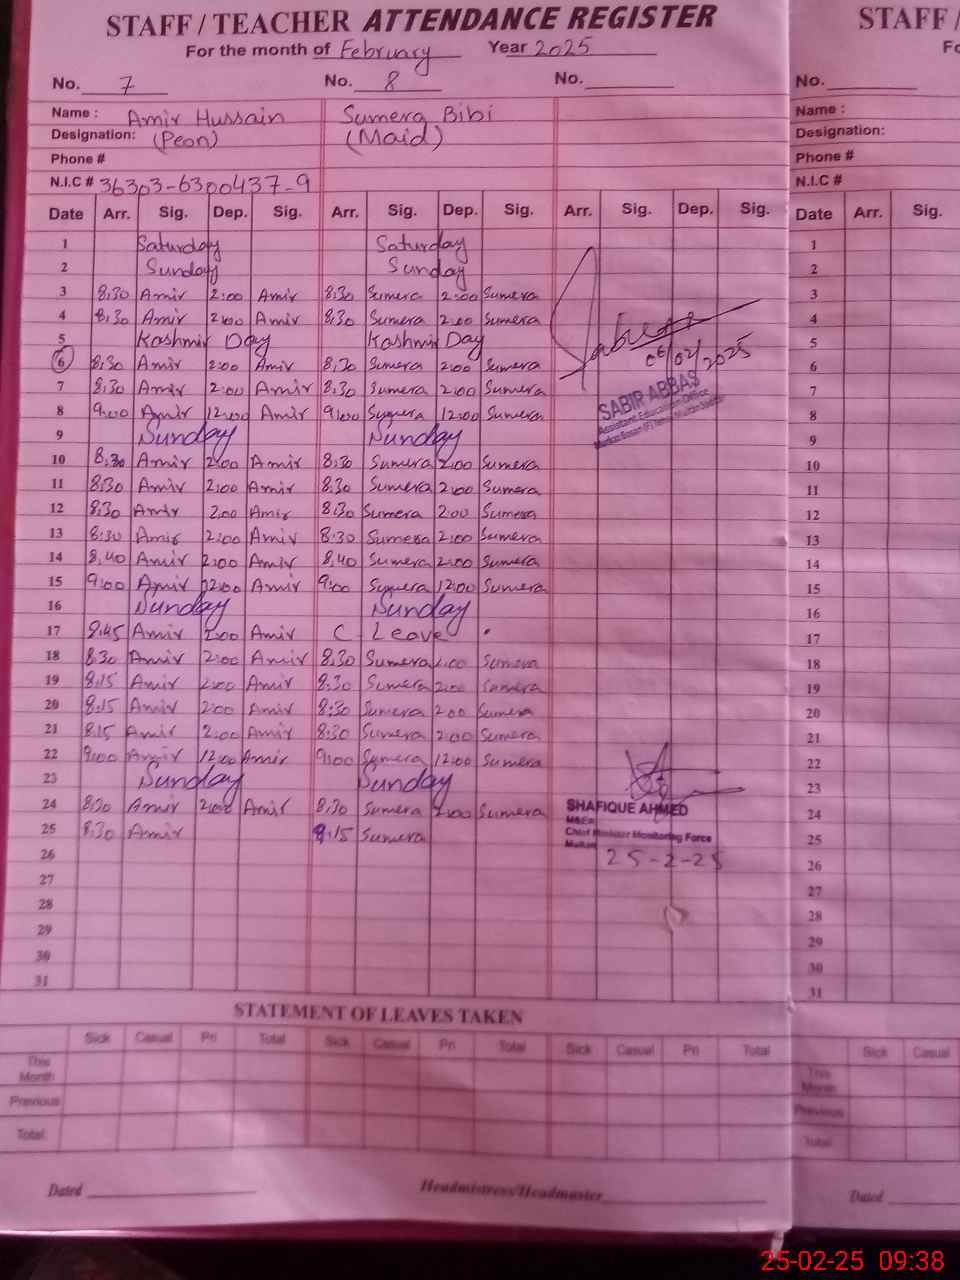 STAFF / TEACHER ATTENDANCE REGISTER
For the month of February Year 2025
No. 7 No. 8 No.
Name : Amir Hussain Sumera Bibi
Designation: (Peon) (Maid)
Phone #
N.I.C # 36303-6300437-9
Date Arr. Sig. Dep. Sig. Arr. Sig. Dep. Sig. Arr. Sig. Dep. Sig.
1 Saturday Saturday
2 Sunday Sunday
3 8:30 Amir 2:00 Amir 8:30 Sumera 2:00 Sumera
4 8:30 Amir 2:00 Amir 8:30 Sumera 2:00 Sumera
5 Kashmir Day Kashmir Day
6 8:30 Amir 2:00 Amir 8:30 Sumera 2:00 Sumera
06/02/2025
7 8:30 Amir 2:00 Amir 8:30 Sumera 2:00 Sumera
SABIR ABBAS
Assistant Education Office
8 9:00 Amir 12:00 Amir 9:00 Sumera 12:00 Sumera
9 Sunday Sunday
10 8:30 Amir 2:00 Amir 8:30 Sumera 2:00 Sumera
11 8:30 Amir 2:00 Amir 8:30 Sumera 2:00 Sumera
12 8:30 Amir 2:00 Amir 8:30 Sumera 2:00 Sumera
13 8:30 Amir 2:00 Amir 8:30 Sumera 2:00 Sumera
14 8:40 Amir 2:00 Amir 8:40 Sumera 2:00 Sumera
15 9:00 Amir 12:00 Amir 9:00 Sumera 12:00 Sumera
16 Sunday Sunday
17 8:45 Amir 2:00 Amir C Leave
18 8:30 Amir 2:00 Amir 8:30 Sumera 2:00 Sumera
19 8:15 Amir 2:00 Amir 8:30 Sumera 2:00 Sumera
20 8:15 Amir 2:00 Amir 8:30 Sumera 2:00 Sumera
21 8:15 Amir 2:00 Amir 8:30 Sumera 2:00 Sumera
22 9:00 Amir 12:00 Amir 9:00 Sumera 12:00 Sumera
23 Sunday Sunday
24 8:30 Amir 2:00 Amir 8:30 Sumera 2:00 Sumera
SHAFIQUE AHMED
25 8:30 Amir 8:15 Sumera
Chief Minister Monitoring Force
Multan
25-2-25
26
27
28
29
30
31
STATEMENT OF LEAVES TAKEN
Sick Casual Pri Total Sick Casual Pri Total Sick Casual Pri Total
This Month
Previous
Total
Dated Headmistress/Headmaster
STAFF /
No.
Name :
Designation:
Phone #
N.I.C #
Date Arr. Sig.
1
2
3
4
5
6
7
8
9
10
11
12
13
14
15
16
17
18
19
20
21
22
23
24
25
26
27
28
29
30
31
Sick Casual
This Month
Previous
Total
Dated
25-02-25 09:38